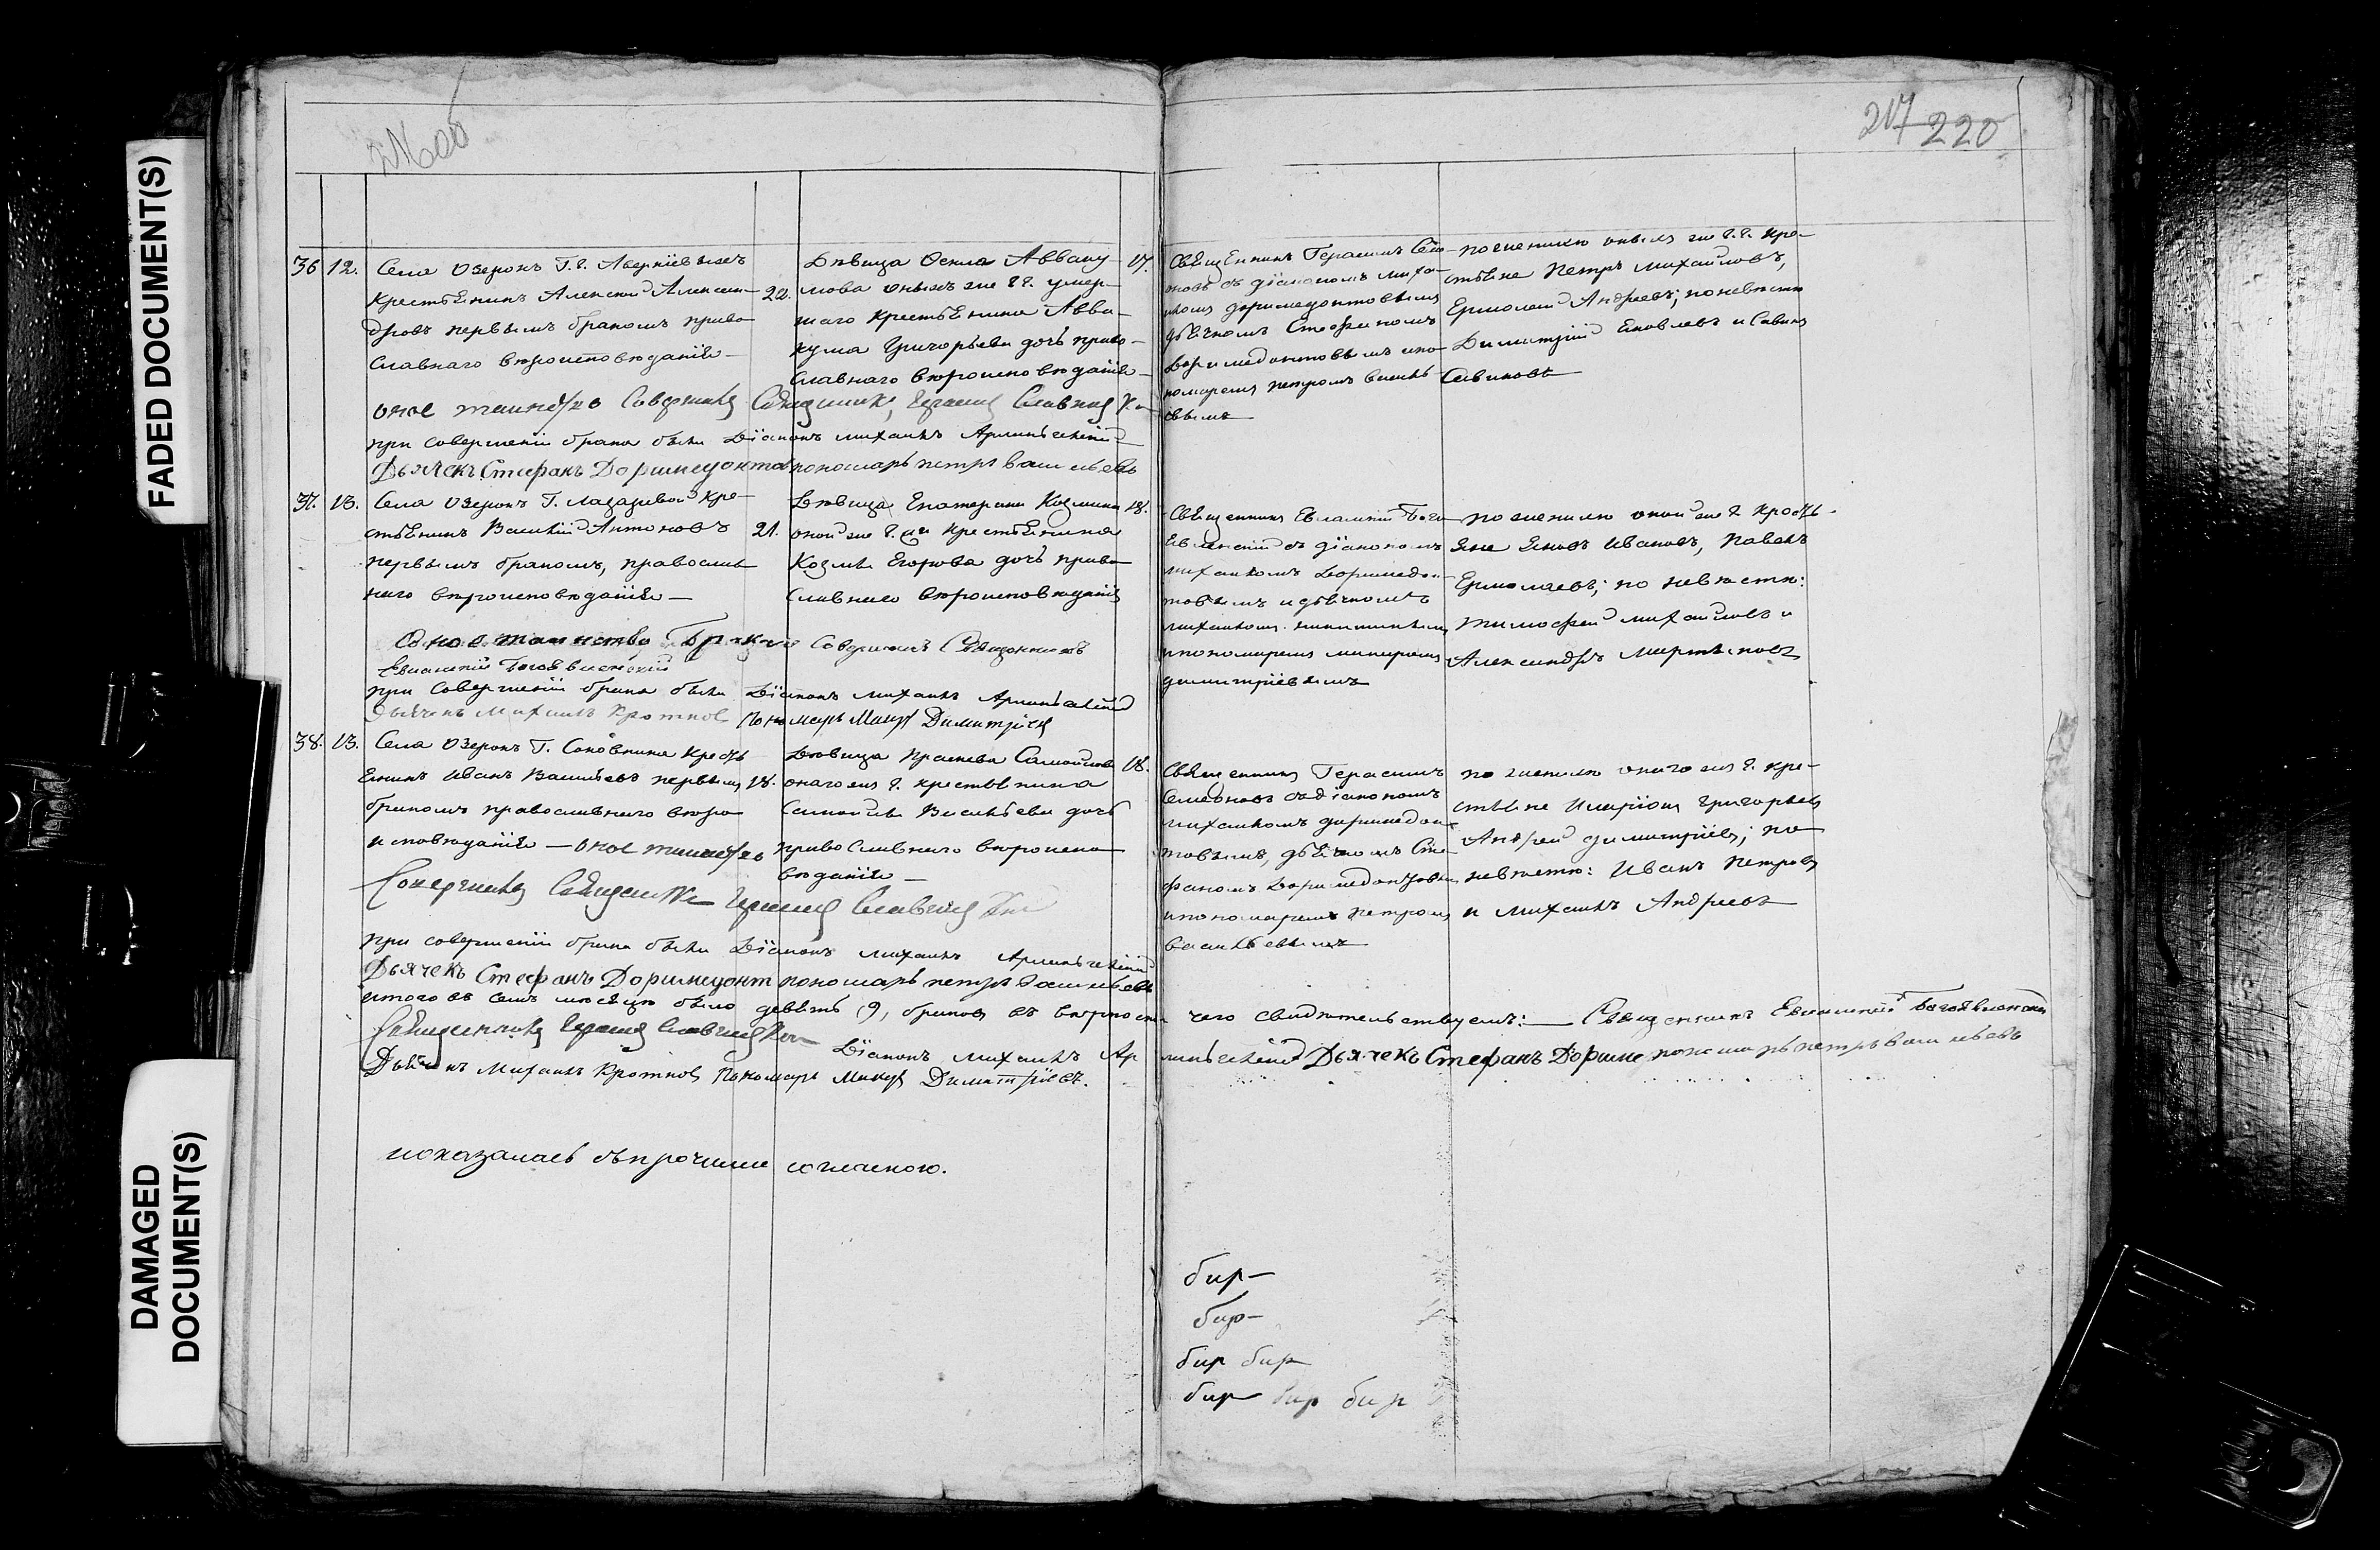 FADED DOCUMENT(S)
DAMAGED
DOCUMENT(S)
217 220
36 12. Села Озерокъ Г.г. Аверкіевыхъ
Крестьянинъ Алексей Алексан-
дровъ первымъ бракомъ право
славнаго вѣроисповѣданія
22.
Дѣвица Фекла Аввану-
мова оныхъ же Г.г. умер-
шаго крестьянина Авва-
кума Григорьева дочь право-
славнаго вѣроисповѣданія
17.
Священникъ Герасимъ Семе-
оновъ съ діакономъ Миха-
иломъ Доримедонтовымъ
дьячкомъ Стефаномъ
Доримедонтовымъ и по-
номаремъ Петромъ Василь
евымъ
по женихѣ оныхъ же Г.г. кре-
стьяне Петръ Михайловъ,
Ермолай Андреевъ; по невѣстѣ
Димитрій Яковлевъ и Савинъ
Савиновъ
оное таинство совершилъ Священникъ Герасимъ
при совершеніи брака были Діаконъ Михаилъ
Дьячекъ Стефанъ Доримедонтов пономарь Петръ Васильевъ
37. 13. Села Озерокъ Г. Лазаревой кре-
стьянинъ Василій Антоновъ
первымъ бракомъ, православ
наго вѣроисповѣданія
21.
Дѣвица Екатерина Козмина
оной же Г. крестьянина
Козмы Егорова дочь право
славнаго вѣроисповѣданія
18.
Священникъ Евлампій Бого
явленскій съ діакономъ
Михаиломъ Доримедон
товымъ и дьячкомъ
Михаиломъ Никитинымъ
и пономаремъ Макаромъ
Димитріевымъ
по женихѣ оной же Г. кресть-
яне Яковъ Ивановъ, Павелъ
Ермолаевъ; по невѣстѣ:
Тимофей Михайловъ и
Александръ Мартыновъ
Оное таинство Брака совершилъ Священникъ
Евлампій Богоявленскій
при совершеніи брака были Діаконъ Михаилъ
Дьячекъ Михаилъ Кротковъ Пономарь Макаръ Димитріевъ
38. 13. Села Озерокъ Г. Соковнина Кресть
янинъ Иванъ Васильевъ первымъ
бракомъ православнаго вѣро
исповѣданія — оное таинство
18.
Дѣвица Прасковья Самойлова
онаго же Г. крестьянина
Самойлы Васильева дочь
православнаго вѣроиспо
вѣданія
18.
Священникъ Герасимъ
Семеоновъ съ діакономъ
Михаиломъ Доримедон
товымъ, дьячкомъ Сте-
фаномъ Доримедонтовы
и пономаремъ Петромъ
Васильевымъ
по женихѣ онаго же Г. кре-
стьяне Иларіонъ Григорьевъ
Андрей Димитріевъ; по
невѣстѣ: Иванъ Петровъ
и Михаилъ Андреевъ
Совершилъ Священникъ Герасимъ
при совершеніи брака были Діаконъ Михаилъ
Дьячекъ Стефанъ Доримедонт пономарь Петръ Васильевъ
Итого въ семъ мѣсяцѣ было девять (9) браковъ въ вѣрности чего свидѣтельствуемъ: Священникъ Евлампій Богоявленскій
Священникъ Герасимъ
Діаконъ Михаилъ
Дьячекъ Стефанъ Дориме пономарь Петръ Васильевъ
Дьячекъ Михаилъ Кротковъ Пономарь Макаръ Димитріевъ.
показалась съ прочими согласною.
бир
бир
бир бир
бир бир бир